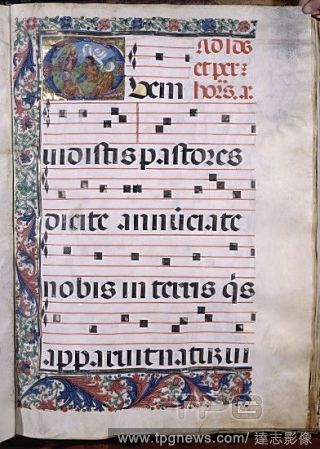 Ad lds
et per
horis. a:
Quem
uidistis pastores
dicite annūciate
nobis in terris q̄s
apparuit natū ui
TPG
www.tpgnews.com/ 達志影像